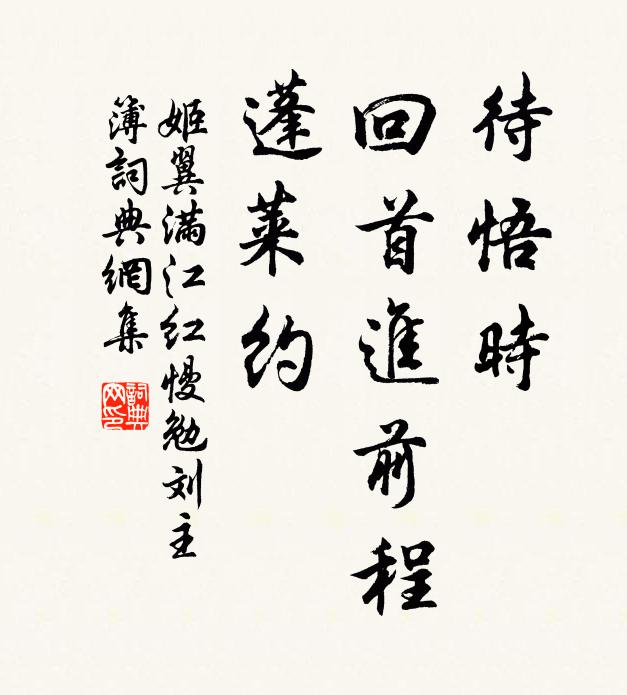 待悟時
回首進前程
蓬萊約
姬翼满江红慢勉刘主
簿詞典網集
詞典網印